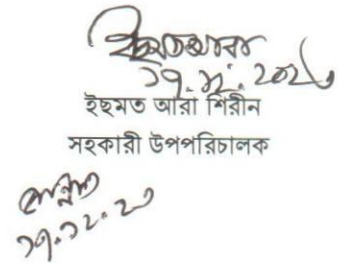 ইছমতআরা
১৭.১২.২০২০
ইছমত আরা শিরীন
সহকারী উপপরিচালক
১৭.১২.২০